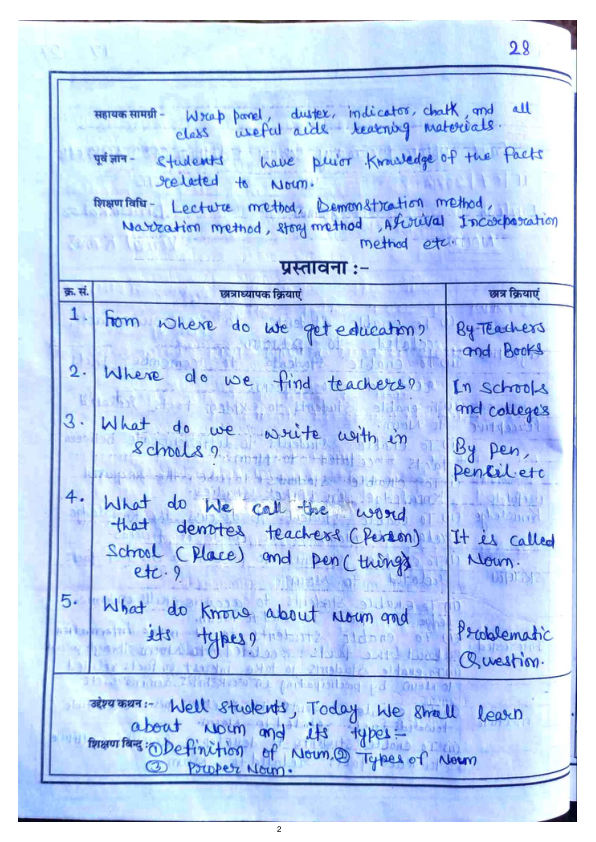 28
सहायक सामग्री - Wrap panel, duster, indicator, chalk, and all
class useful aids learning materials.
पुर्व ज्ञान - Students have prior Knowledge of the facts
related to Noun.
शिक्षण विधि - Lecture method, Demonstration method,
Narration method, story method, Incorporation
method etc.
प्रस्तावना :-
क्र.सं. छात्राध्यापक क्रियाएं छात्र क्रियाएं
1. From where do we get education? By Teachers
and Books
2. Where do we find teachers? In schools
and college's
3. What do we write with in
schools? By pen,
pencil etc
4. What do we call the word
that denotes teachers (Person) It is called
School (Place) and pen (things) Noun.
etc.?
5. What do know about Noun and
its types? Problematic
Question.
उद्देश्य कथन :- Well students, Today we shall learn
about Noun and its types :-
शिक्षण बिन्दु :- ① Definition of Noun. ② Types of Noun
③ Proper Noun.
2